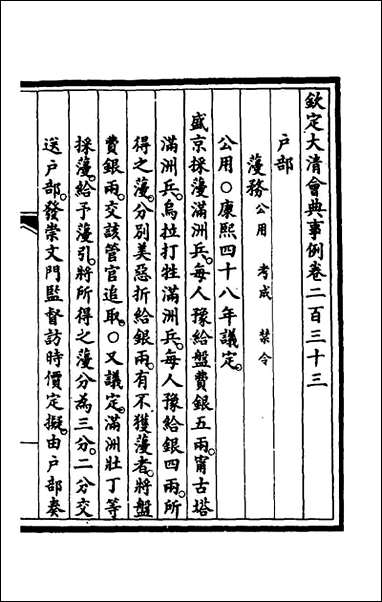 欽定大清會典事例卷二百三十三
戶部
薓務公用 考成 禁令
公用○康熙四十八年議定。
盛京採薓滿洲兵。每人豫給盤費銀五兩。甯古塔
滿洲兵。烏拉打牲滿洲兵。每人豫給銀四兩。所
得之薓。分別美惡折給銀兩。有不獲薓者。將盤
費銀兩。交該管官追取。○又議定。滿洲壯丁等
採薓。給予薓引。將所得之薓分為三分。二分交
送戶部。發崇文門監督訪時價定擬。由戶部奏